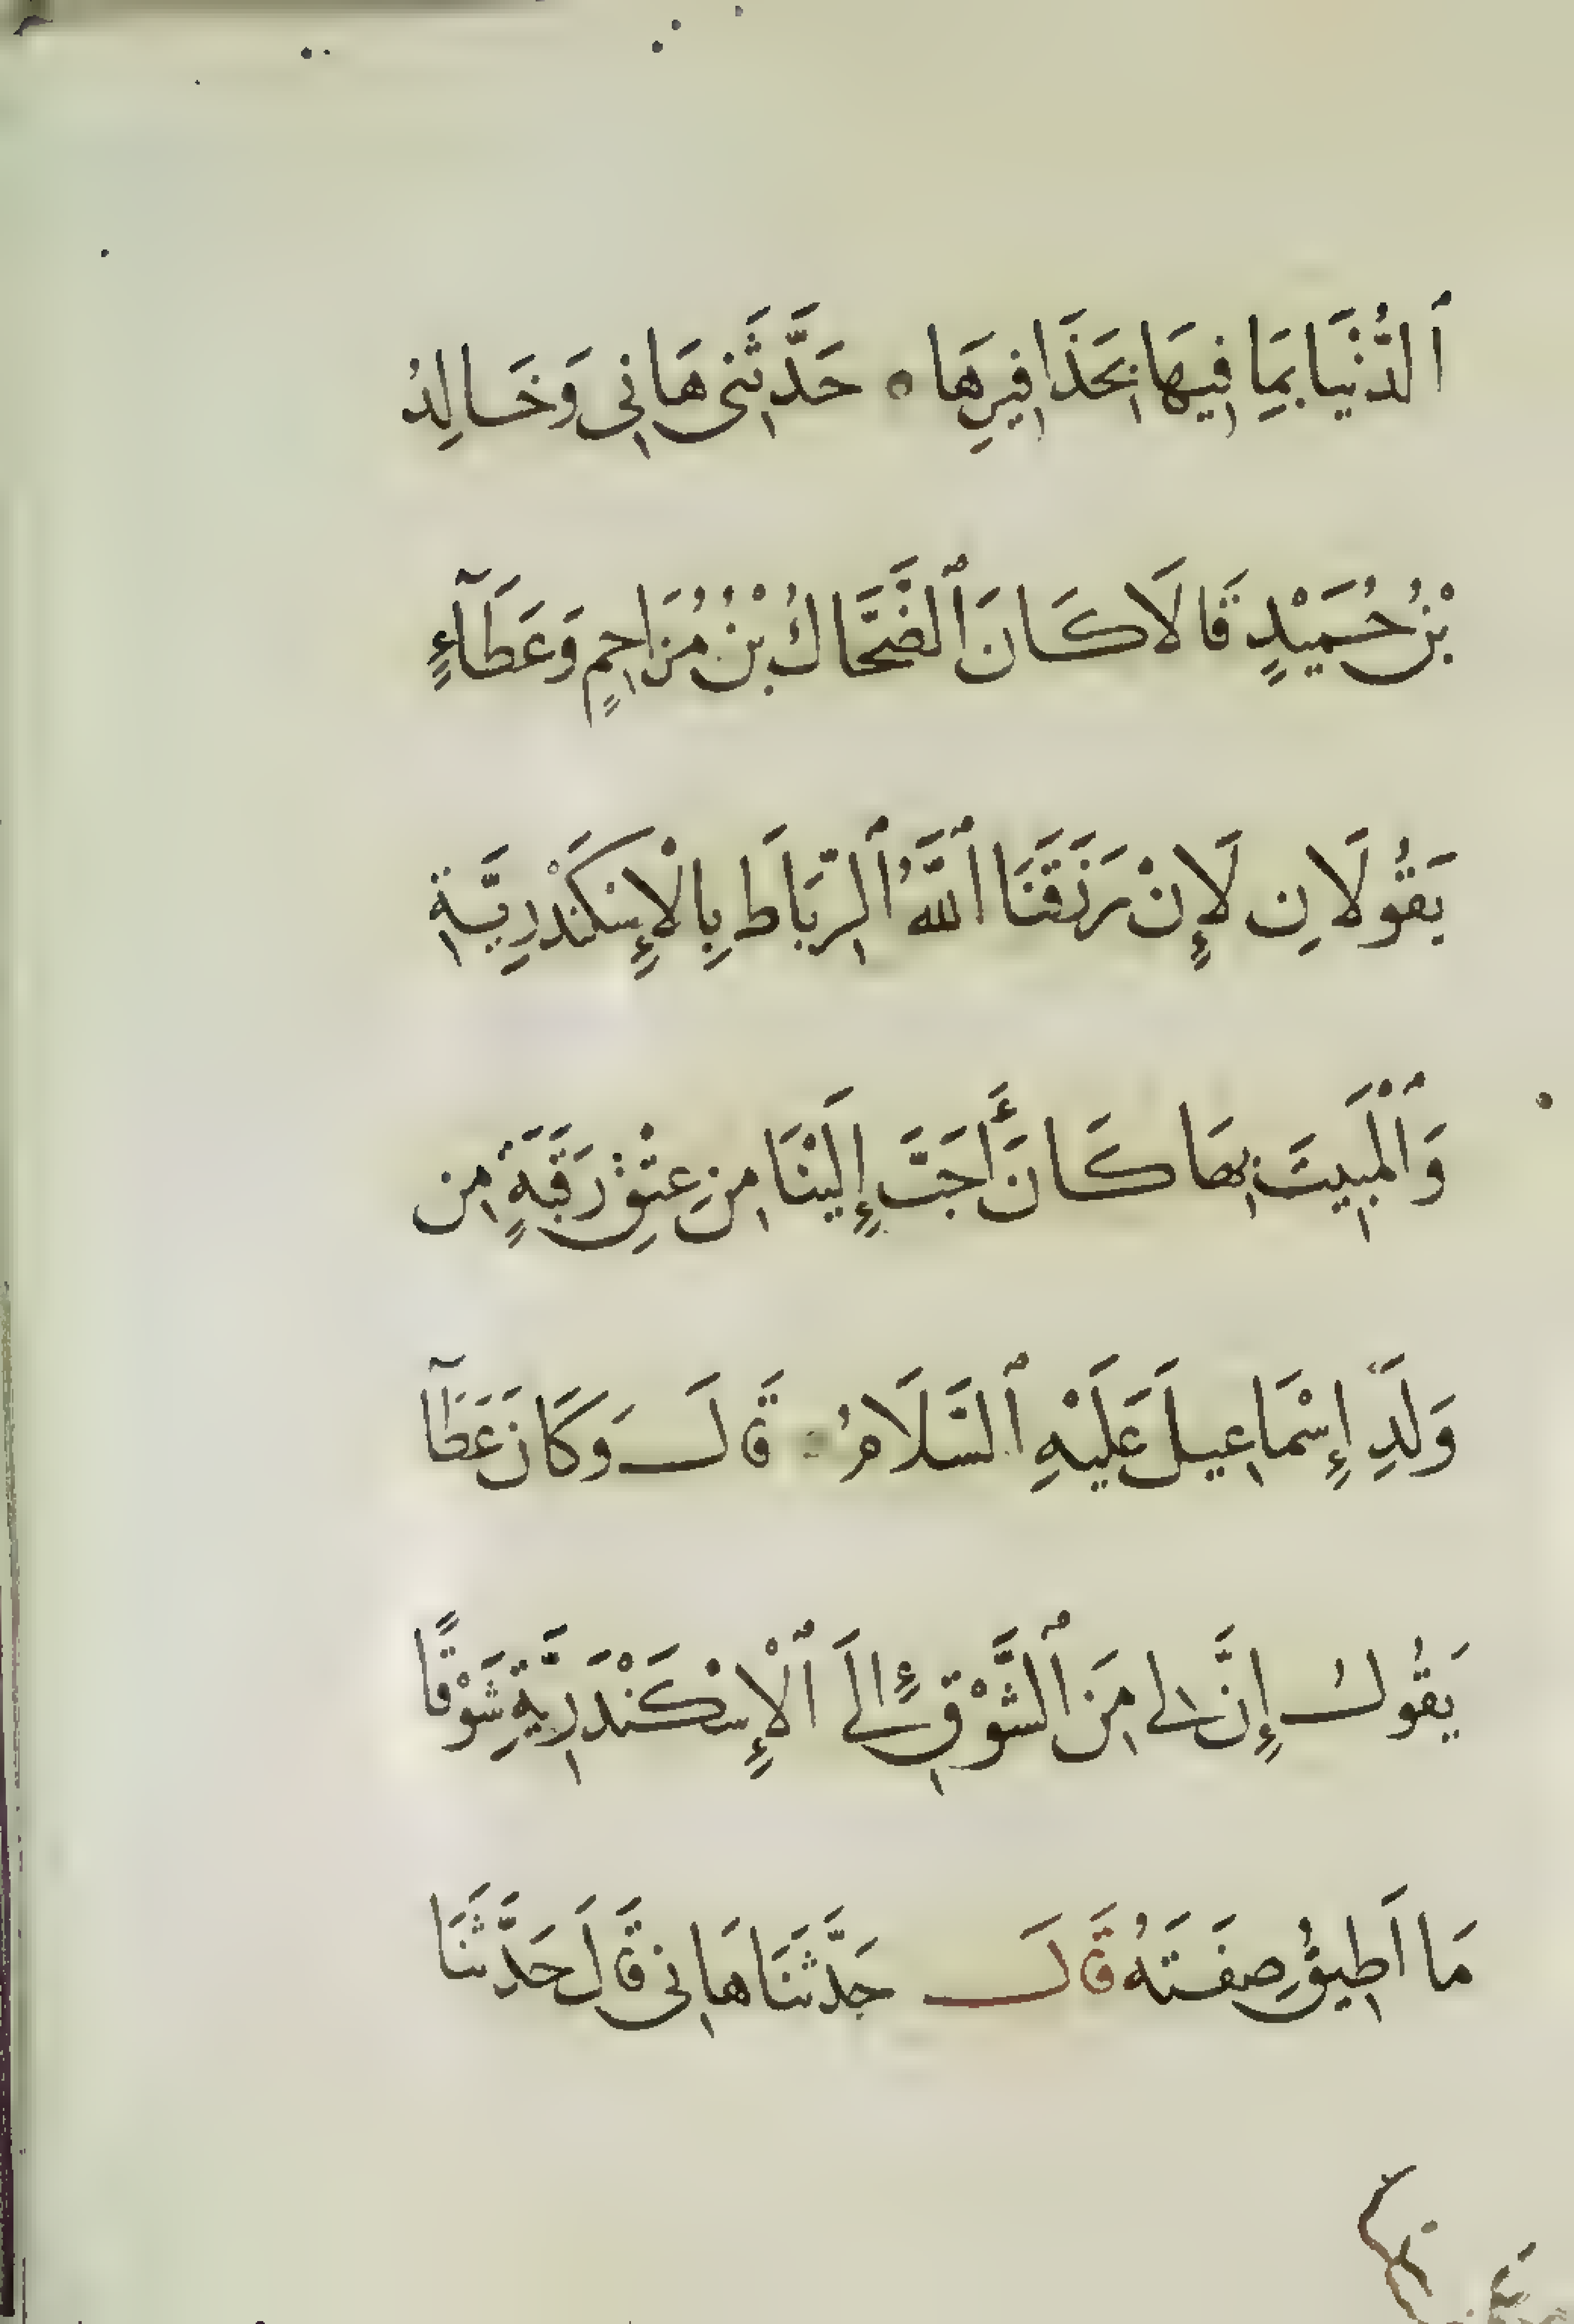 ٱلدُّنْيَا بِمَا فِيهَا بِحَذَافِيرِهَا ۰ حَدَّثَنِي هَانِي وَخَالِدُ
بْنُ حُمَيْدٍ قَالَا كَانَ ٱلضَّحَّاكُ بْنُ مُزَاحِمٍ وَعَطَآءٍ
يَقُولَانِ لَإِنْ رَزَقَنَا ٱللَّهُ ٱلرِّبَاطَ بِالْإِسْكَنْدَرِيَّةِ
وَٱلْمَبِيتَ بِهَا كَانَ أَحَبَّ إِلَيْنَا مِنْ عِتْقِ رَقَبَةٍ مِن
وَلَدِ إِسْمَاعِيلَ عَلَيْهِ ٱلسَّلَامُ ۰ قَالَ وَكَانَ عَطَآ
يَقُولُ إِنَّ لِي مِنَ ٱلشَّوْقِ إِلَى ٱلْإِسْكَنْدَرِيَّةِ شَوْقًا
مَا اَطِيقُ صِفَتَهُ قَالَ حَدَّثَنَا هَانِي قَالَ حَدَّثَنَا